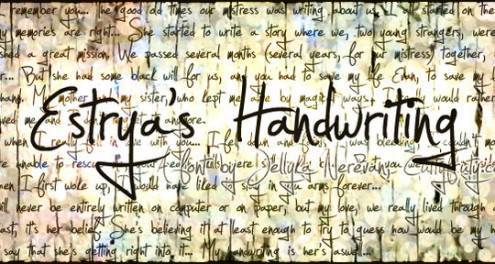 remember you... the good old times our mistress was writing about us. It all started on the
my memories are right... She started to write a story where we, two young strangers, were
had a great mission. We passed several months (several years, for mistress) together,
r... But she had some black will for us, and you had to save my life Edan, to save my
My mother my sister, who kept me by magical ways... I would rather
Estrya's Handwriting
when I really with you... I fell down and was bleeding couldn't
unable to Font by Jellyka Nerevan
when I first woke up, I would have liked in your arms forever...
will never be entirely written on computer or on paper, but my love, we really lived through
at, it's her belief. She's believing it at least enough to try to guess how would be my
say that she's getting right into it... My handwriting is her's as well...